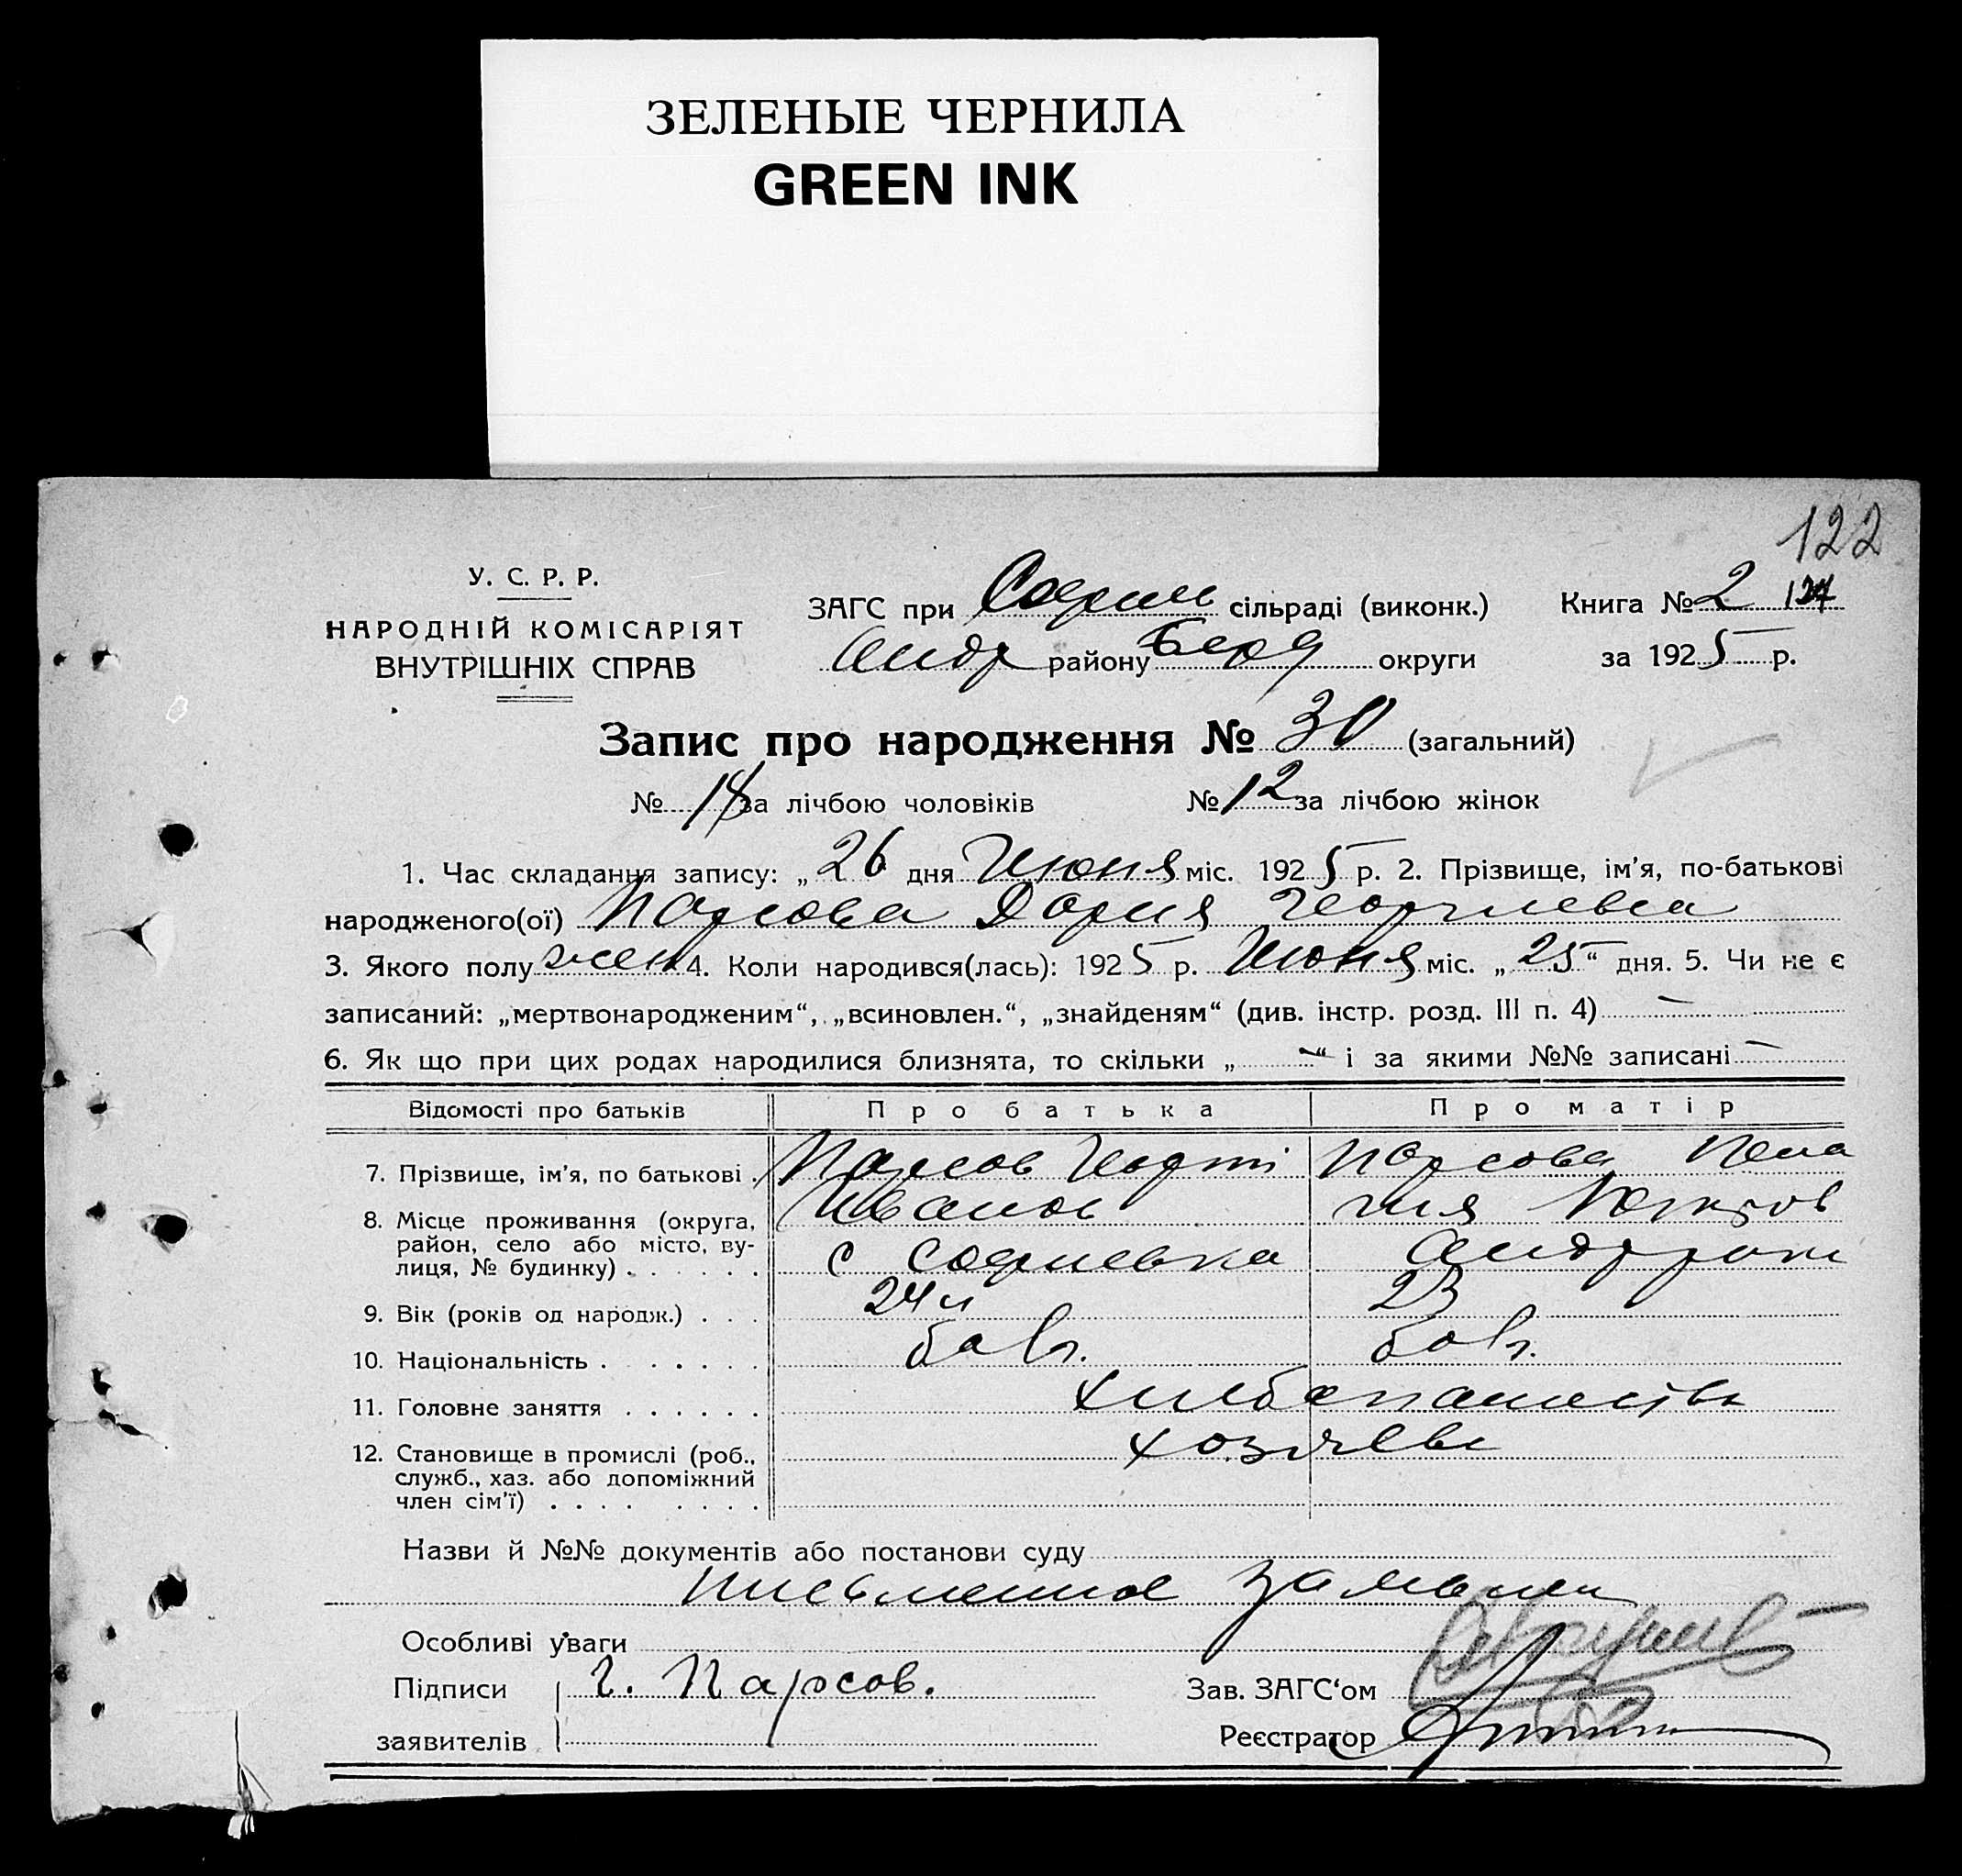 ЗЕЛЕНЫЕ ЧЕРНИЛА
GREEN INK
122
У. С. Р. Р.
НАРОДНІЙ КОМІСАРІЯТ
ВНУТРІШНІХ СПРАВ
ЗАГС при Софии сільраді (виконк.) Книга № 2
Андр району Берд округи за 1925 р.
Запис про народження № 30 (загальний)
№ 18 за лічбою чоловіків № 12 за лічбою жінок
1. Час складання запису: „26 дня Июня міс. 1925 р. 2. Прізвище, ім'я, по-батькові
народженого(ої) Парсова Дария Георгиевна
3. Якого полу жен 4. Коли народився(лась): 1925 р. Июня міс. „25“ дня. 5. Чи не є
записаний: „мертвонародженим“, „всиновлен.“, „знайденям“ (див. інстр. розд. III п. 4) —
6. Як що при цих родах народилися близнята, то скільки „—“ і за якими №№ записані —
Відомості про батьків Про батька Про матір
7. Прізвище, ім'я, по батькові . Парсов Георги Парсова Пела
Иванов гия
8. Місце проживання (округа,
район, село або місто, ву-
лиця, № будинку) . . . . . . с Софиевка Андр рони
9. Вік (років од народж.) . . . 24 23
10. Національність . . . . . . болг. болг.
11. Головне заняття . . . . . . хлебопашество
12. Становище в промислі (роб.,
служб., хаз. або допоміжний
член сім'ї) . . . . . . . . хозяева
Назви й №№ документів або постанови суду
письменное заявлен
Особливі уваги
Підписи Г. Парсов. Зав. ЗАГС‘ом
заявителів Реєстратор